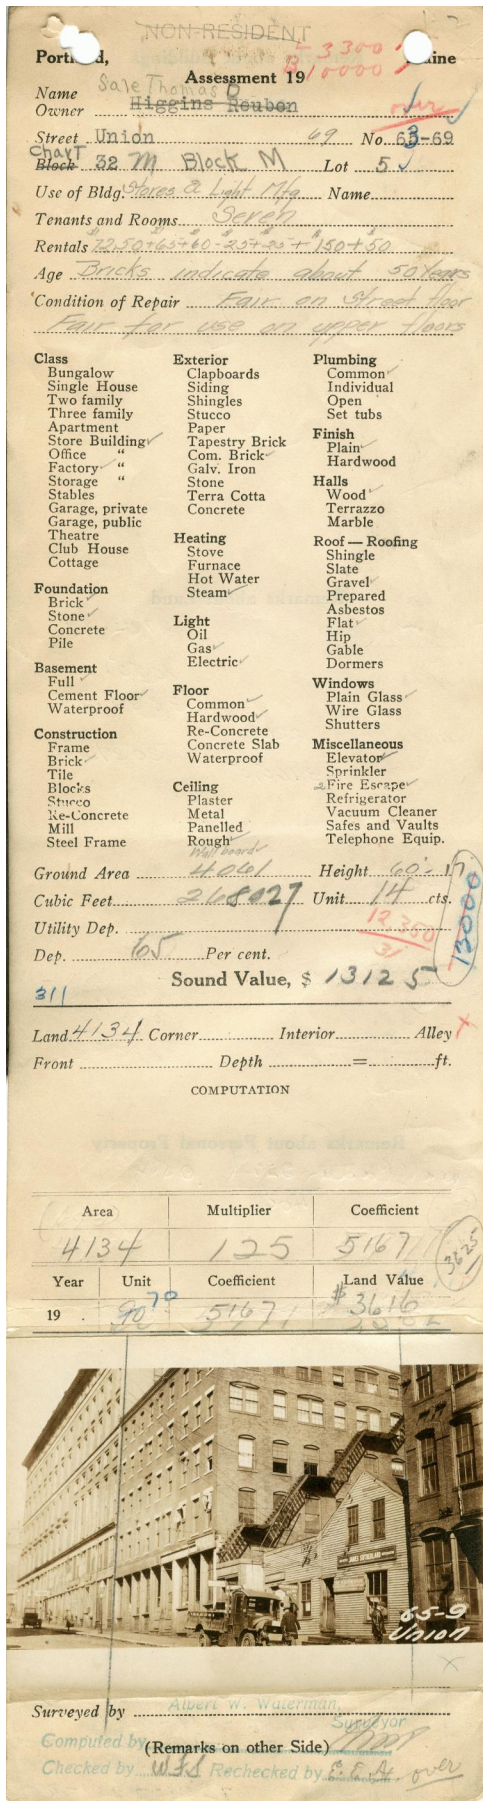 NON-RESIDENT
L 3300
B 10000
Portland, Maine
Assessment 19
Name Sale Thomas D
Owner Higgins Reuben
over
Street Union 69 No. 63-69
Chart
Block 32 M Block M Lot 5
Use of Bldg. Stores & Light Mfg Name
Tenants and Rooms Seven
Rentals 72.50+65+60-25+25+150+50
Age Bricks indicate about 50 Years
Condition of Repair Fair on Street floor
Fair for use on upper floors
Class
Bungalow
Single House
Two family
Three family
Apartment
Store Building ✓
Office "
Factory ✓ "
Storage "
Stables
Garage, private
Garage, public
Theatre
Club House
Cottage
Foundation
Brick ✓
Stone ✓
Concrete
Pile
Basement
Full ✓
Cement Floor ✓
Waterproof
Construction
Frame
Brick ✓
Tile
Blocks
Stucco
Re-Concrete
Mill
Steel Frame
Exterior
Clapboards
Siding
Shingles
Stucco
Paper
Tapestry Brick
Com. Brick ✓
Galv. Iron
Stone
Terra Cotta
Concrete
Heating
Stove
Furnace
Hot Water
Steam ✓
Light
Oil
Gas ✓
Electric ✓
Floor
Common ✓
Hardwood ✓
Re-Concrete
Concrete Slab
Waterproof
Ceiling
Plaster
Metal
Panelled
Rough ✓
Wall board
Plumbing
Common ✓
Individual
Open
Set tubs
Finish
Plain ✓
Hardwood
Halls
Wood ✓
Terrazzo
Marble
Roof — Roofing
Shingle
Slate
Gravel ✓
Prepared
Asbestos
Flat ✓
Hip
Gable
Dormers
Windows
Plain Glass ✓
Wire Glass
Shutters
Miscellaneous
Elevator ✓
Sprinkler
2 Fire Escape ✓
Refrigerator
Vacuum Cleaner
Safes and Vaults
Telephone Equip.
Ground Area 4061 Height 60'-
Cubic Feet 268027 Unit 14 cts.
Utility Dep. 12,350
31
13000
Dep. 65 Per cent.
Sound Value, $ 13125
311
Land 4134 Corner Interior Alley X
Front Depth = ft.
COMPUTATION
Area Multiplier Coefficient
4134 125 5167
3625
Year Unit Coefficient Land Value
19 90 70 5167 $3616
JAMES SUTHERLAND
65-9
Union
X
Surveyed by Albert W. Waterman,
Surveyor
Computed by
(Remarks on other Side)
Checked by W.F.S Rechecked by E. E. H. over